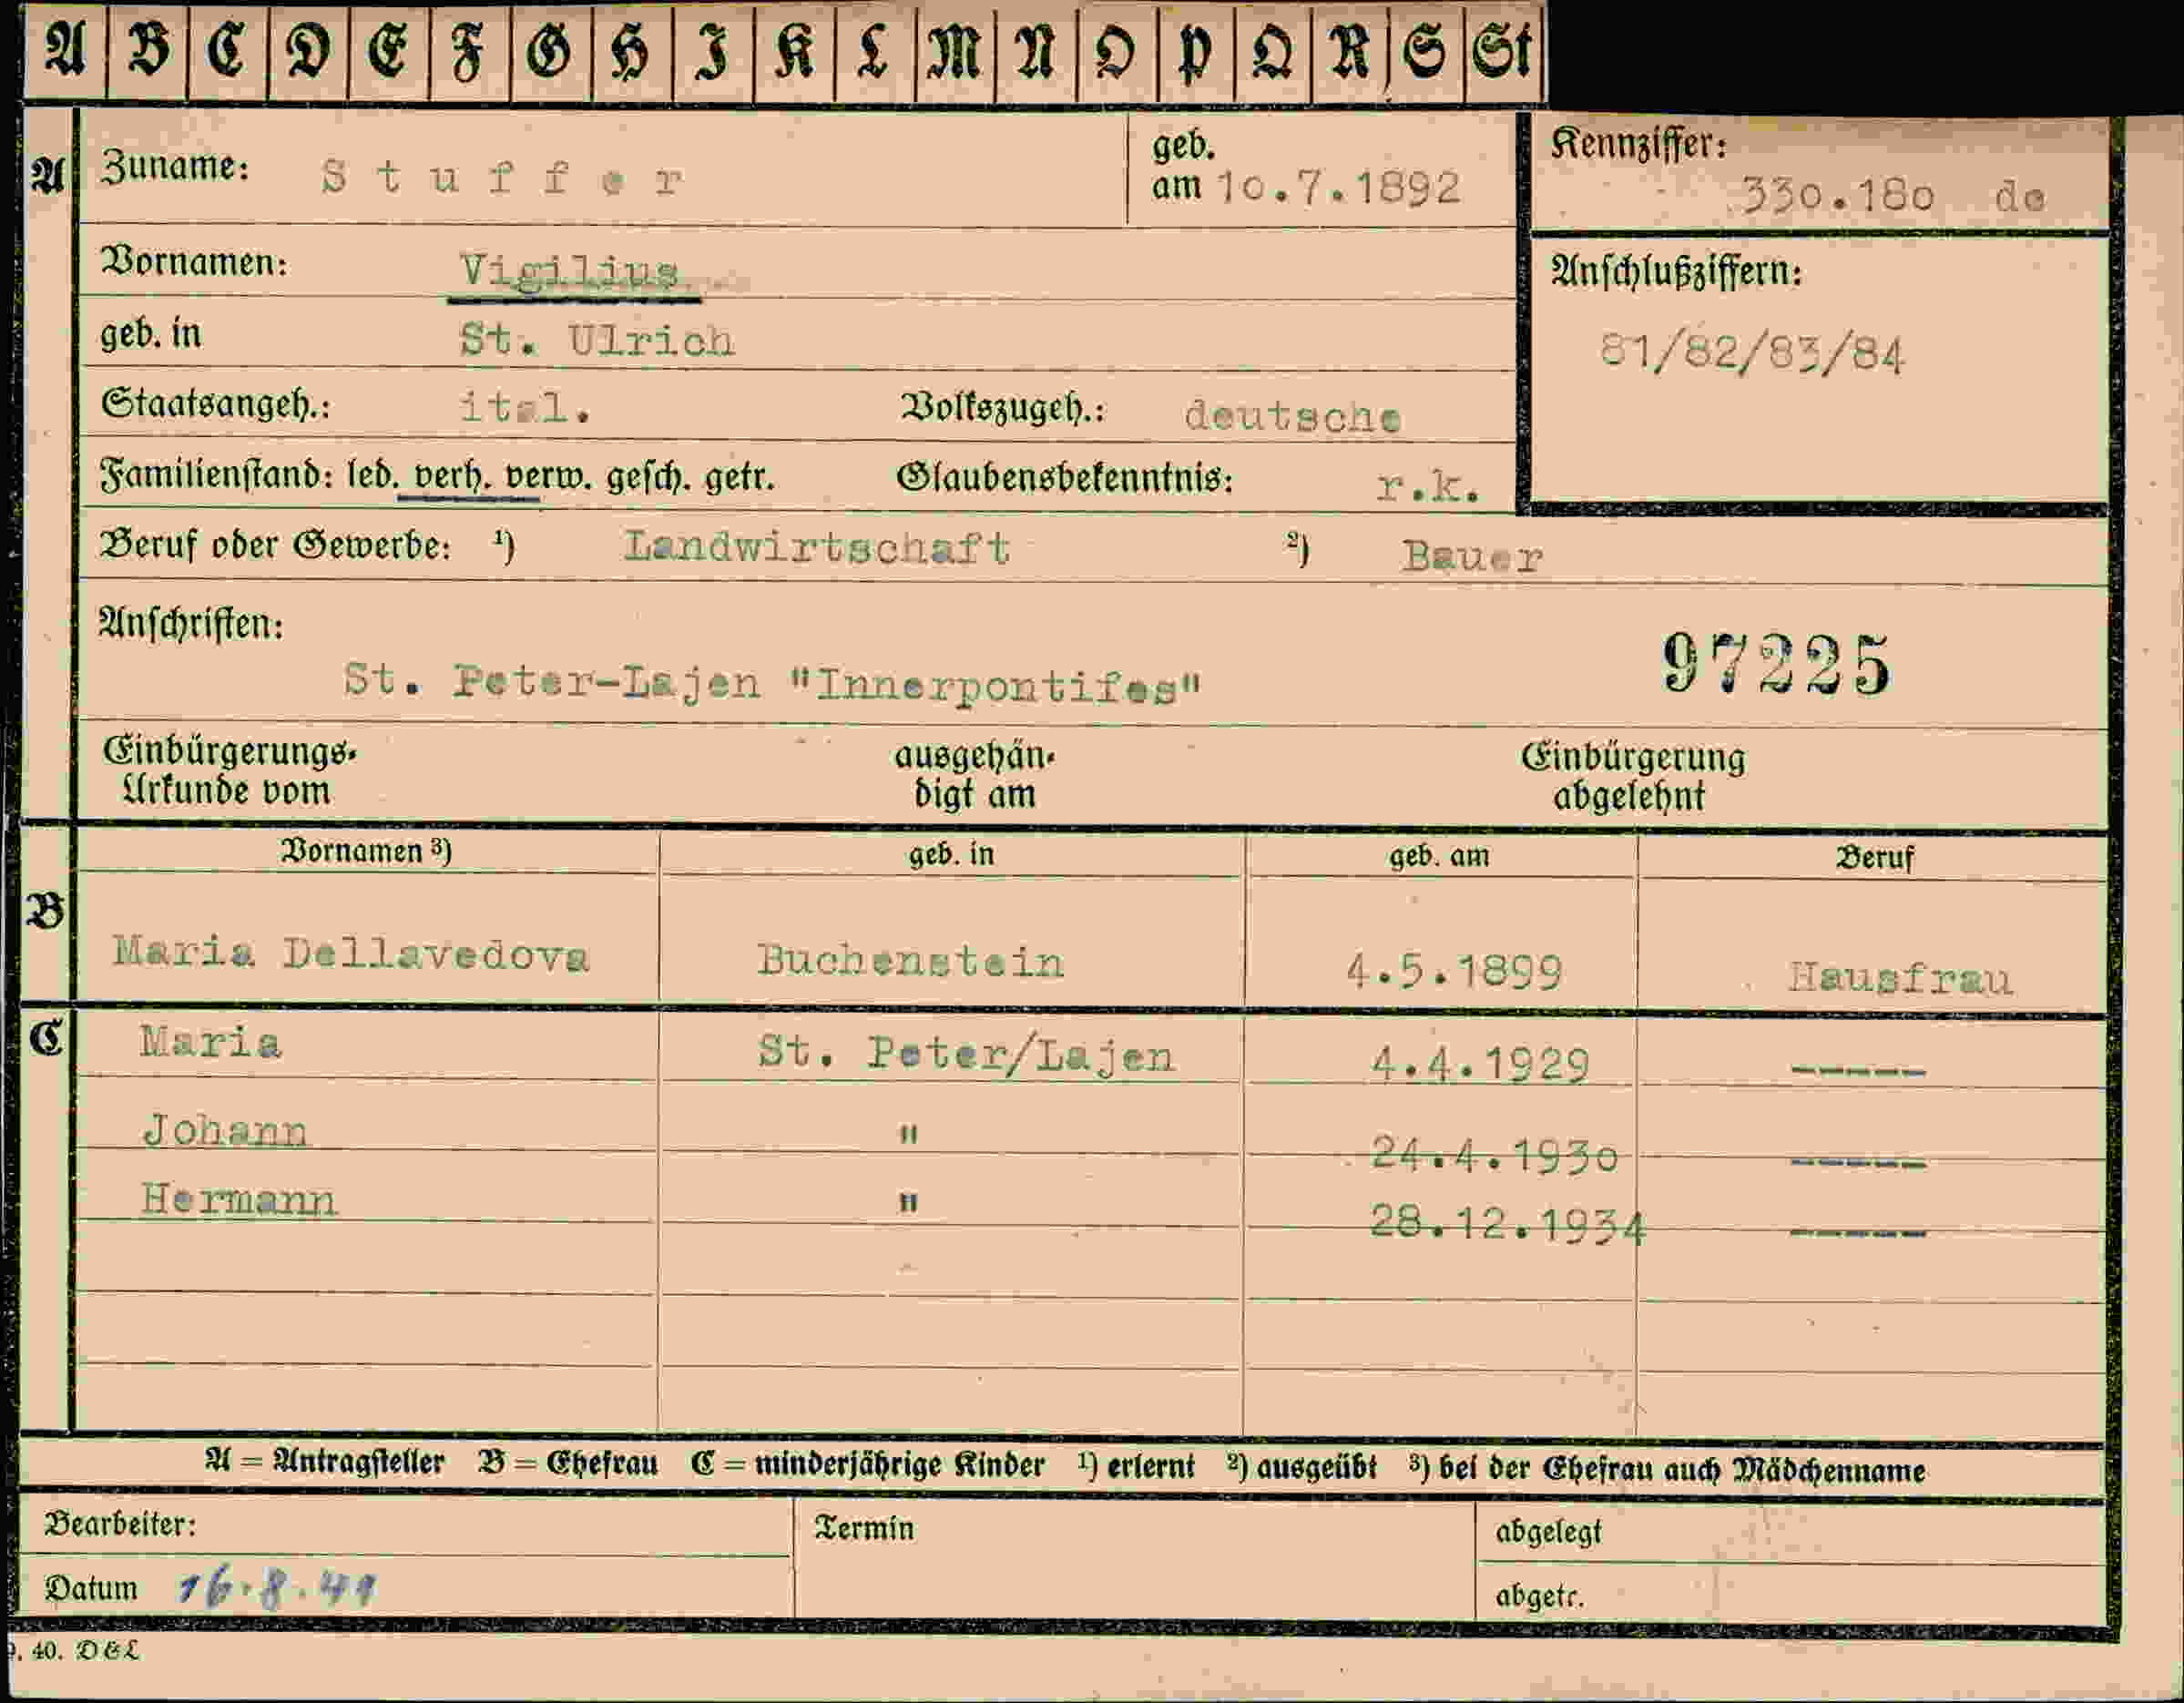 A B C D E F G H I K L M N O P Q R S St
A Zuname: Stuffer geb. am 10.7.1892 Kennziffer: 330.180 de
Vornamen: Vigilius
geb. in St. Ulrich
Anschlußziffern: 81/82/83/84
Staatsangeh.: ital. Volkszugeh.: deutsche
Familienstand: led. verh. verw. gesch. getr. Glaubensbekenntnis: r.k.
Beruf oder Gewerbe: ¹) Landwirtschaft ²) Bauer
Anschriften:
97225
St. Peter-Lajen "Innerpontifes"
Einbürgerungs-Urkunde vom ausgehän-digt am Einbürgerung abgelehnt
Vornamen ³) geb. in geb. am Beruf
B
Maria Dellavedova Buchenstein 4.5.1899 Hausfrau
C Maria St. Peter/Lajen 4.4.1929 -----
Johann " 24.4.1930 -----
Hermann " 28.12.1934 -----
A = Antragsteller B = Ehefrau C = minderjährige Kinder ¹) erlernt ²) ausgeübt ³) bei der Ehefrau auch Mädchenname
Bearbeiter: Termin abgelegt
Datum 16.8.41 abgetr.
40. D&L